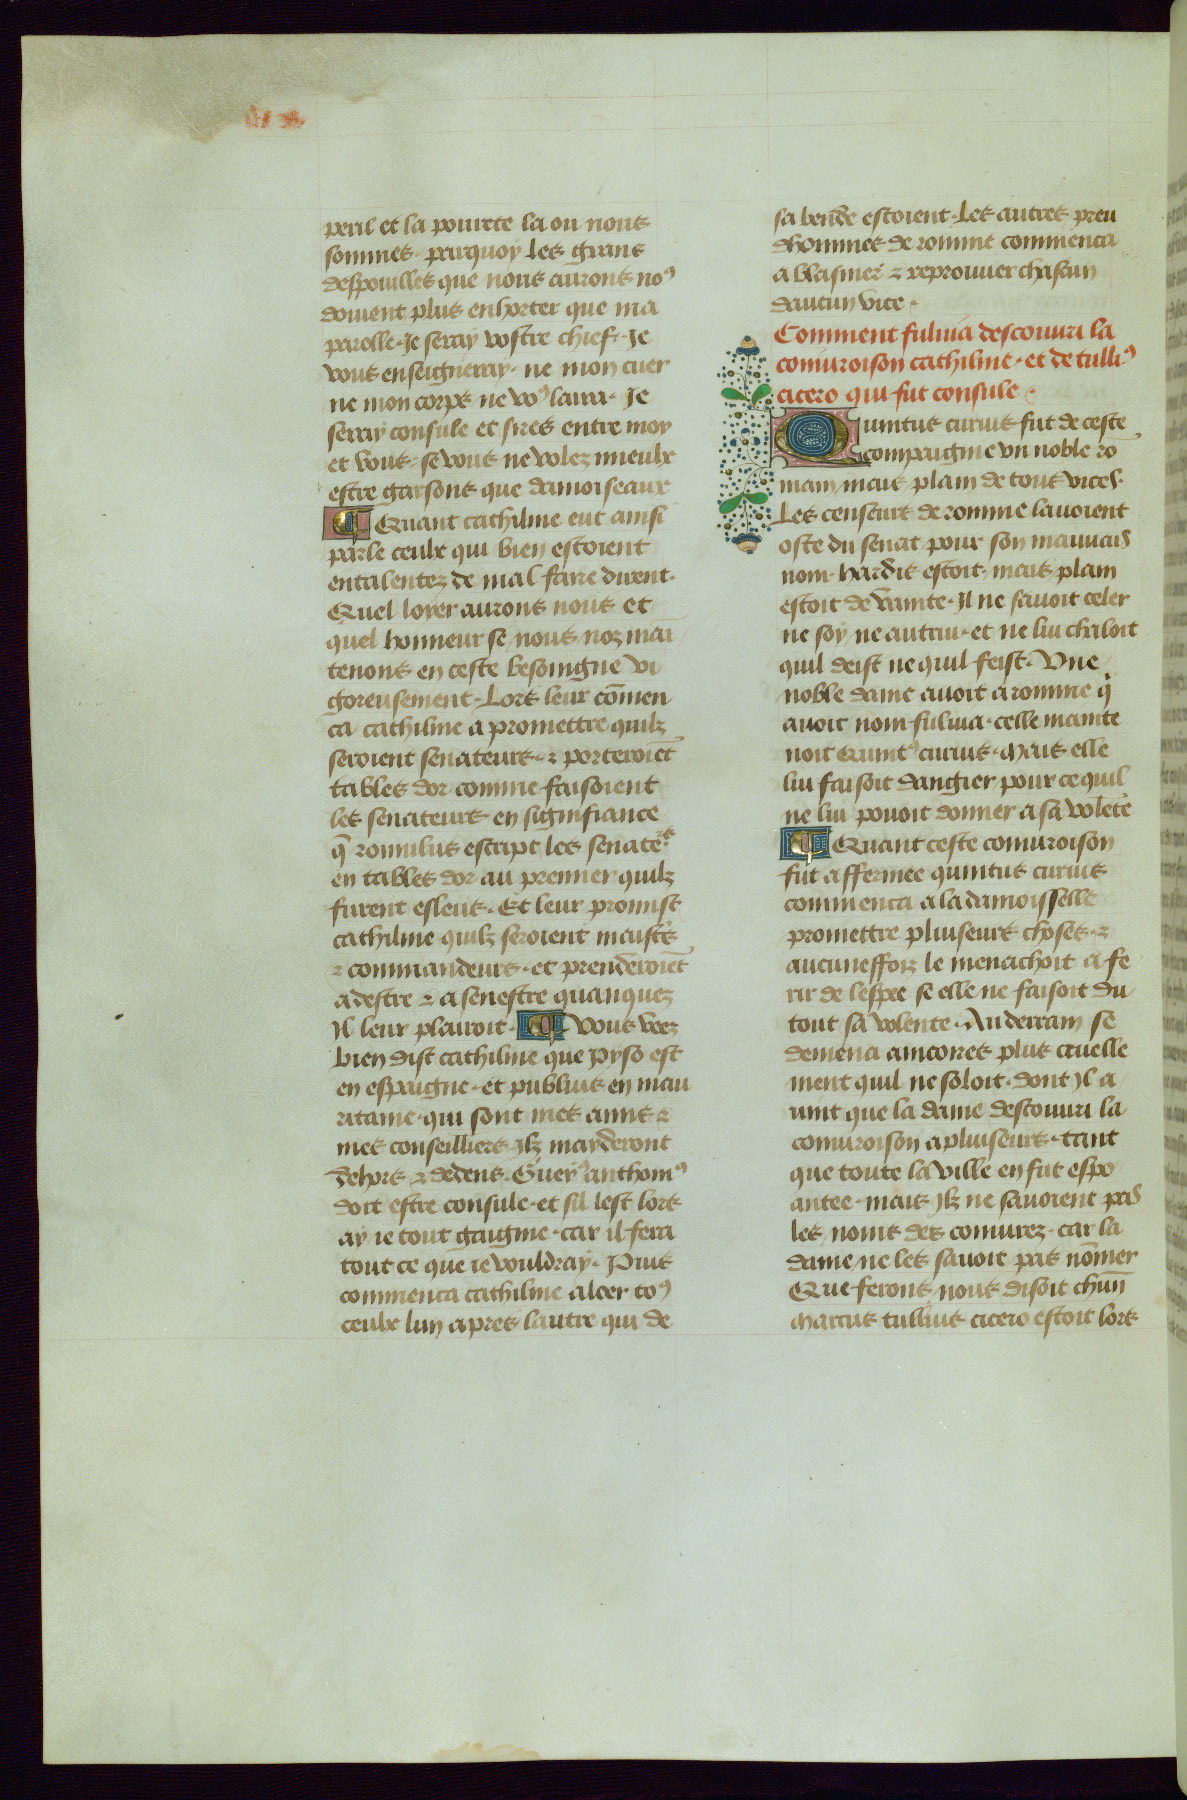 peril et la pourete la ou nous
sommes. parquoy les grans
despouilles que nous aurons noꝰ
doiuent plus enhorter que ma
parolle. Je seray vostre chief. Je
vous enseigneray. ne mon cuer
ne mon corps ne voꝰ laira. Je
seray consule et sires entre moy
et vous. se vous ne volez mieulx
estre garsons que damoiseaux
Quant cathiline eut ainsi
parle ceulx qui bien estoient
entalentez de mal faire dirent.
Quel loyer aurons nous et
quel honneur se nous noz mai
tenons en ceste besoingne vi
goreusement. Lors leur cōmen
ca cathiline a promettre quilz
seroient senateurs. ⁊ porteroiēt
tables dor comme faisoient
les senateurs en signifiance
q̄ romulus escript les senateʳˢ
en tables dor au premier quilz
furent esleus. Et leur promist
cathiline quilz seroient maistrˢ
⁊ commandeurs. et prenderoiēt
a destre ⁊ a senestre quanquez
Il leur plairoit. Vous veez
bien dist cathiline que Pyso est
en espaigne. et publius en mau
ritaine. qui sont mes amis ⁊
mes conseilliers. Ilz mayderont
dehors ⁊ dedens. Gueyꝰ anthoniꝰ
doit estre consule. et sil lest lors
ay ie tout gaignie. car il fera
tout ce que ie vouldray. Puis
commenca cathiline aloer toꝰ
ceulx lun apres lautre qui de
sa bende estoient. Les autres preu
dhommes de romme commenca
a blasmer ⁊ reprouuer chascun
daucun vice.
Comment fuluia descouuri la
coniuroison cathiline. et de tulliꝰ
cicero qui fut consule.
Quintus curius fut de ceste
compaignie vn noble ro
main mais plain de tous vices.
Les censeurs de romme lauoient
oste du senat pour son mauuais
nom. hardis estoit. mais plain
estoit de vainte. Il ne sauoit celer
ne soy ne autrui. et ne lui chaloit
quil deist ne quil feist. Vne
noble dame auoit a romme q̇
auoit nom fuluia. celle mainte
noit Quintꝰ curius. Mais elle
lui faisoit dangier pour ce quil
ne lui pouoit donner a sa volētē
Quant ceste coniuroison
fut affermee quintus curius
commenca a la damoisselle
promettre pluiseurs choses. ⁊
aucuneffoiz le menachoit a fe
rir de lespee se elle ne faisoit du
tout sa volente. Au derrain se
demena amcores plus cruelle
ment quil ne soloit. dont Il a
uint que la dame descouuri la
coniuroison a pluiseurs. tant
que toute la ville en fut espo
antee. mais Ilz ne sauoient pas
les noms des coniurez. car la
dame ne les sauoit pas nōmer
Que ferons nous disoit chūn
Marcus tullius cicero estoit lors